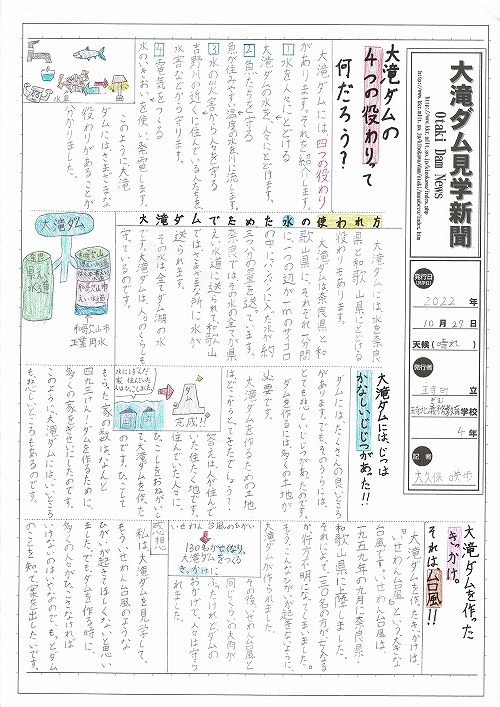 大滝ダム見学新聞
Otaki Dam News
発行日
2022年
10月27日
天候(晴れ)
発行者
立
学校
4年
記者
大滝ダムの
4つの役わりって
何だろう?
大滝ダムには、四つの役わり
があります。それを紹介します。
1 水を人々にとどける
大滝ダムの水を、人々にとどけます。
2 魚たちを守る
魚が住みやすい温度の水を川に流します。
3 水の災害から人を守る
吉野川の近くに住んでいる人たちを
水害などから守ります。
4 電気をつくる
水のいきおいを使い、発電します。
このように大滝
ダムには、さまざまな
役わりがあることが
分かりました。
水車
大滝ダムでためた水の使われ方
大滝ダムには水を奈良
県と和歌山県にとどける
役わりもあります。
大滝ダムは奈良県と和
歌山県に、それぞれ一秒間
奈良では、その水の全てが県
えい水道に送られ、和歌山
ではさまざまな所に水が
送られます。
その水は全てダム湖の水
です。大滝ダムは、人々のくらしを
守っているのです。
大滝ダム
奈良
県えい水道
和歌山市
工業用水
大滝ダムには、じつは
かなしい、じじつがあった!!
ダムには、たくさんの良いところ
があります。でも、そのうらには、
とても悲しいじじつがあったのです。
ダムを作るには、多くの土地が
必要です。
大滝ダムを作るための土地
はどこからとってきたでしょう?
答えは、人が住んで
いた土地です。
住んでいた人々に、
ひっこしをおねがいし
て、大滝ダムを作った
のです。ひっこして
もらった家の数は、なんと
四九三けん!ダムを作るために、
多くの家をぎせいにしたのです。
このように大滝ダムには、いいところ
も、悲しいところもあるのです。
完成!!
大滝ダムを作った
きっかけ。
それは台風!!
大滝ダムを作ったきっかけは、
「いせわん台風」という大きな
台風です。いせわん台風は、
一九五九年の九月に奈良県・
和歌山県に上陸しました。
それによって、一三〇名の方が亡くなる
か行方不明になってしまいました。
もう、こんなひがいが起きないように、
大滝ダムが作られました。
その後、いせわん台風と
同じくらいの大雨が
ふったけれど、ダムの
おかげで、人々は守ら
れました。
いせわん台風のひがい
130名が亡くなり、
大滝ダムをつくる
きっかけに
感想
私は、大滝ダムを見学して、
もう、いせわん台風のような
ひがいが起きてほしくないなと思い
ました。でも、ダムを作る時に、
多くの人々がひっこさなければ
いけないのはいやなので、もっとダム
のことを知って、案を出したいです。